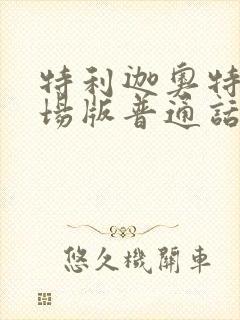 特利迦奥特
場版普通話
悠久機關車